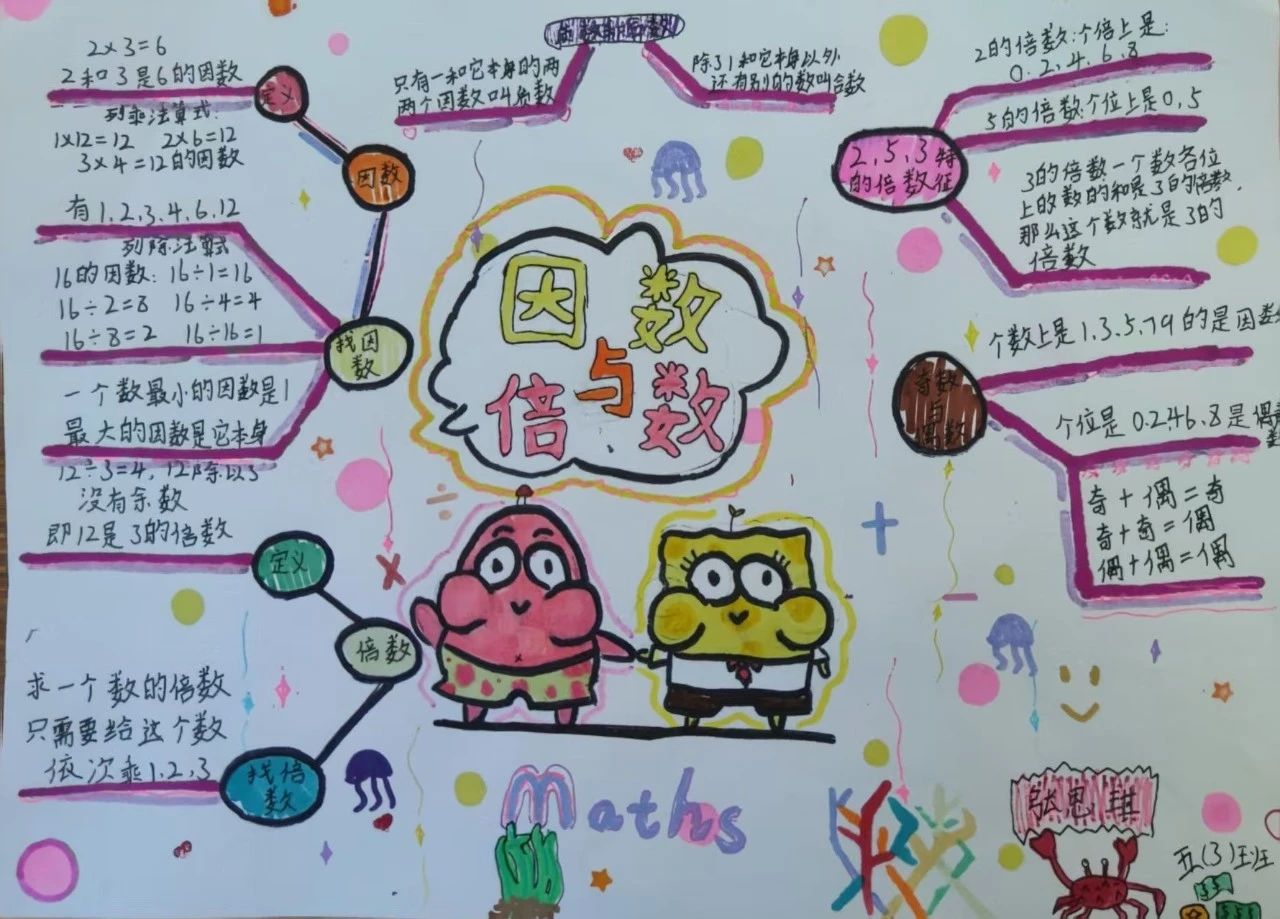 2×3=6
2和3是6的因数
定义
列乘法算式:
1×12=12 2×6=12
3×4=12的因数
因数
有1,2,3,4,6,12
列除法算式
16的因数: 16÷1=16
16÷2=8 16÷4=4
16÷8=2 16÷16=1
找因
数
一个数最小的因数是1
最大的因数是它本身
12÷3=4, 12除以3
没有余数
即12是3的倍数
定义
倍数
求一个数的倍数
只需要给这个数
依次乘1,2,3
找倍
数
只有一和它本身的两
两个因数叫质数
除了1和它本身以外
还有别的数叫合数
因数
与
倍数
Maths
2的倍数:个倍上是:
0.2,4,6,8
5的倍数:个位上是0,5
2,5,3特
的倍数征
3的倍数一个数各位
上的数的和是3的倍数,
那么这个数就是3的
倍数
个数上是1.3.5.79的是因数
奇数
与
偶数
个位是0.246.8是偶
数
奇+偶=奇
奇+奇=偶
偶+偶=偶
张思琪
五(3)班